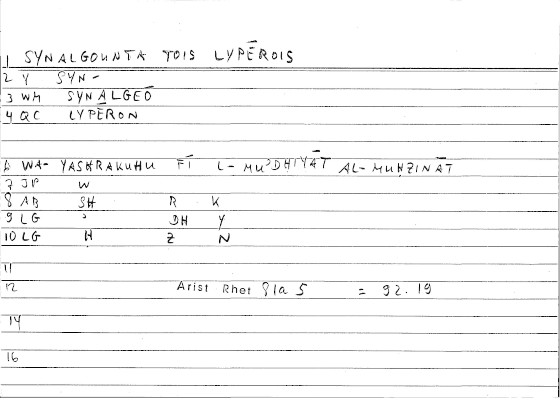 1 SYNALGOUNTA TOIS LYPĒROIS
2 Y SYN-
3 WH SYNALGEŌ
4 QC LYPĒRON
6 WA- YASHRAKUHU FĪ L-MUʾDHIYĀT AL-MUHZINĀT
7 JP W
8 AB SH R K
9 LG ʾ DH Y
10 LG H Z N
11
12 Arist Rhet 81a 5 = 92.19
14
16